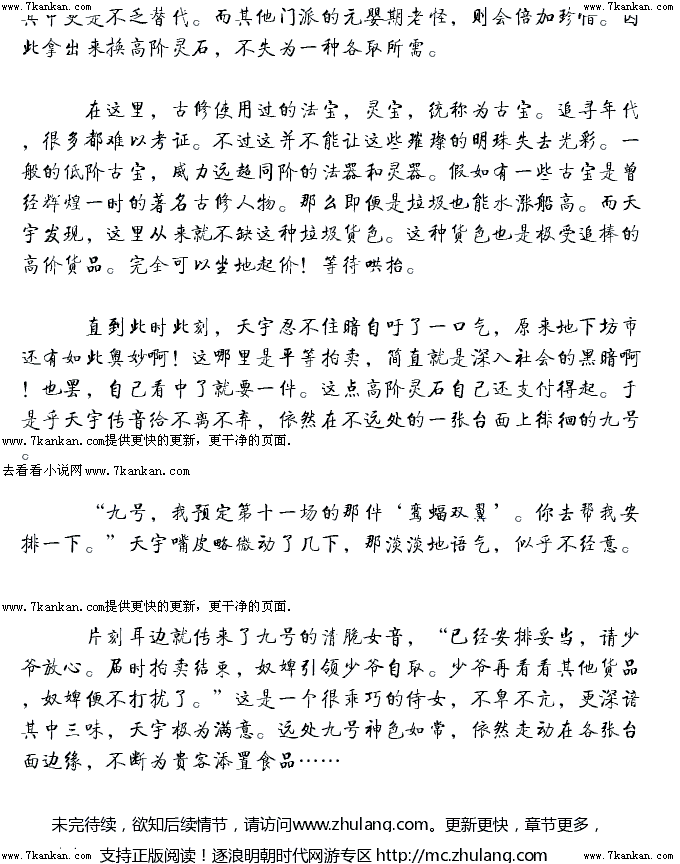 www.7kankan.com www.7kankan.com
其中更是不乏替代。而其他门派的元婴期老怪，则会倍加珍惜。因
此拿出来换高阶灵石，不失为一种各取所需。
在这里，古修使用过的法宝，灵宝，统称为古宝。追寻年代
，很多都难以考证。不过这并不能让这些璀璨的明珠失去光彩。一
般的低阶古宝，威力远超同阶的法器和灵器。假如有一些古宝是曾
经辉煌一时的著名古修人物。那么即便是垃圾也能水涨船高。而天
宇发现，这里从来就不缺这种垃圾货色。这种货色也是极受追捧的
高价货品。完全可以坐地起价！等待哄抬。
直到此时此刻，天宇忍不住暗自吁了一口气，原来地下坊市
还有如此奥妙啊！这哪里是平等拍卖，简直就是深入社会的黑暗啊
！也罢，自己看中了就要一件。这点高阶灵石自己还支付得起。于
是乎天宇传音给不离不弃，依然在不远处的一张台面上徘徊的九号
www.7kankan.com提供更快的更新，更干净的页面.
。
去看看小说网www.7kankan.com
“九号，我预定第十一场的那件‘鸾蝠双翼’。你去帮我安
排一下。”天宇嘴皮略微动了几下，那淡淡地语气，似乎不经意。
www.7kankan.com提供更快的更新，更干净的页面.
片刻耳边就传来了九号的清脆女音，“已经安排妥当，请少
爷放心。届时拍卖结束，奴婢引领少爷自取。少爷再看看其他货品
，奴婢便不打扰了。”这是一个很乖巧的侍女，不卑不亢，更深谙
其中三味，天宇极为满意。远处九号神色如常，依然走动在各张台
面边缘，不断为贵客添置食品……
未完待续，欲知后续情节，请访问www.zhulang.com。更新更快，章节更多，
支持正版阅读！逐浪明朝时代网游专区 http://mc.zhulang.com
www.7kankan.com www.7kankan.com